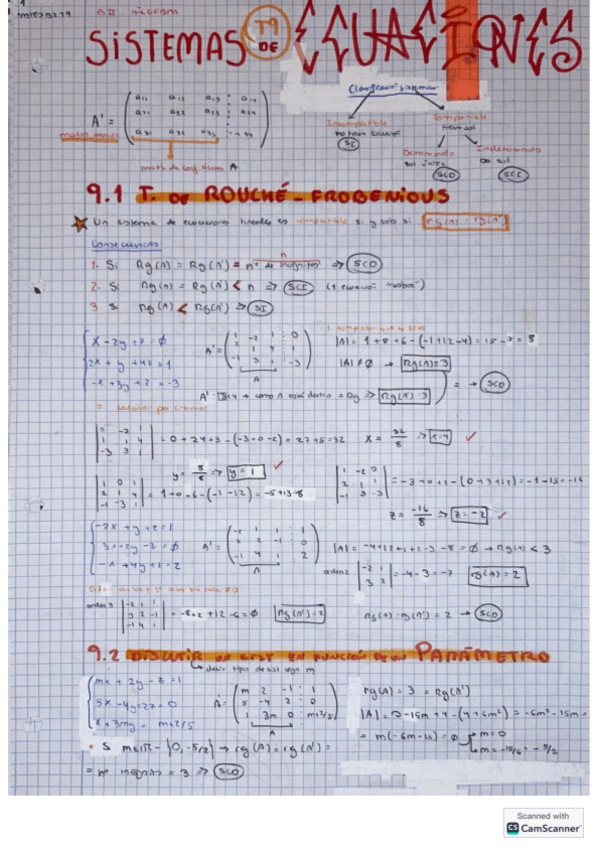 BII - ÁLGEBRA
SISTEMAS T9 DE ECUACIONES
A' = ( a11 a12 a13 : a14
a21 a22 a23 : a24
a31 a32 a33 : a34 )
matriz de coeficientes A
Clasificación sistemas
Incompatible
no tiene solución
SI
Compatible
tiene sol
Determinado
sol única
SCD
Indeterminado
∞ sol
SCI
9.1 T. DE ROUCHÉ - FROBENIOUS
Un sistema de ecuaciones lineales es compatible si y solo si rg(A) = rg(A')
Consecuencias
1. Si Rg(A) = Rg(A') = nº de incógnitas ⇒ SCD
n
2. Si Rg(A) = Rg(A') < n ⇒ SCI (1 ecuación "sobra")
3. Si Rg(A) < Rg(A') ⇒ SI
x - 2y + z = 0
2x + y + 4z = 1
-x + 3y + z = -3
A' = ( 1 -2 1 : 0
2 1 4 : 1
-1 3 1 : -3 )
A
|A| = 1 + 8 + 6 - (-1 + 12 - 4) = 15 - 7 = 8
|A| ≠ 0 → Rg(A) = 3
A' : 3x4 → como A está dentro = Rg ⇒ Rg(A') = 3
= → SCD
| 0 -2 1
1 1 4
-3 3 1 | = 0 + 24 + 3 - (-3 + 0 - 2) = 27 + 5 = 32
x = 32/8 ⇒ x = 4 ✓
y = 8/8 ⇒ y = 1 ✓
| 1 0 1
2 1 4
-1 -3 1 | = 1 + 0 - 6 - (-1 - 12) = -5 + 13 = 8
| 1 -2 0
2 1 1
-1 3 -3 | = -3 + 0 + 2 - (0 + 3 + 12) = -1 - 15 = -16
z = -16/8 ⇒ z = -2 ✓
-2x + y + z = 1
3x + 2y - z = 0
-x + 4y + z = 2
A' = ( -2 1 1 : 1
3 2 -1 : 0
-1 4 1 : 2 )
A
|A| = -4 + 12 + 1 + 2 - 3 - 8 = 0 → Rg(A) < 3
orden 2 | -2 1
3 2 | = -4 - 3 = -7
rg(A) = 2
orden 3 | -2 1 1
3 2 -1
-1 4 1 |
Rg(A') = 2
9.2 DISCUTIR UN SIST EN FUNCIÓN DE UN PARÁMETRO
decir tipo de sol según m
mx + 2y - z = 1
5x - 4y + 2z = 0
x + 3my = m + 2/5
A' = ( m 2 -1 : 1
5 -4 2 : 0
1 3m 0 : m+2/5 )
A
rg(A) = 3 = Rg(A')
= m(-6m - 15) = 0
m = 0
m = -15/6 = -5/2
• Si m ∈ ℝ - {0, -5/2} → rg(A) = rg(A') =
= nº incógnitas = 3 ⇒ SCD
Scanned with
CS CamScanner